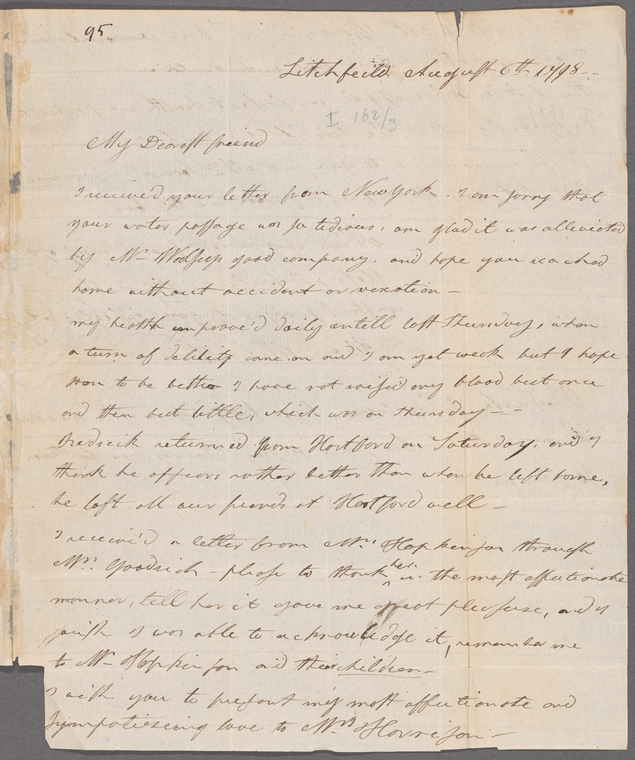 95
Litchfeild August 6th 1798 -
I 162/3
My Dearest freind
I receiv'd your letter from New York. I am sorry that
your water passage was so tedious, am glad it was alleviated
by Mr Woolseys good company, and hope you reached
home without accident or vexation -
my health improve'd daily untill last Thursday, when
a turn of debility came on and I am yet weak but I hope
soon to be better I have not raised any blood but once
and then but little, which was on thursday -
Fredrick returned from Hartford on Saturday, and I
think he appears rather better than when he left home,
he left all our freinds at Hartford well -
I receiv'd a letter from Mrs Hopkinson through
Mrs Goodrich - please to thank her in the most affectionate
manner, tell her it gave me great pleasure, and I
wish I was able to acknowledge it, remember me
to Mr Hopkinson and their children -
I wish you to present my most affectionate and
sympatiseing love to Mrs Harrison -